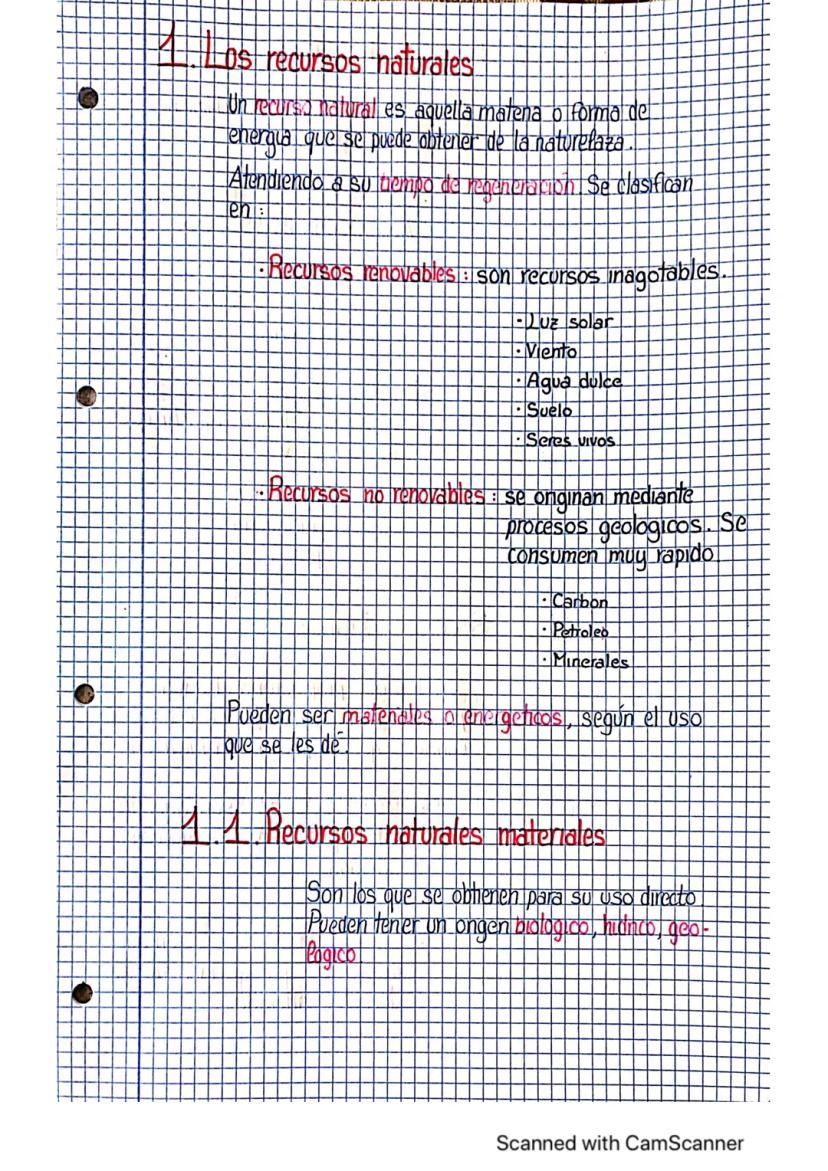 1. Los recursos naturales
Un recurso natural es aquella materia o forma de
energia que se puede obtener de la naturaleza.
Atendiendo a su tiempo de regeneración. Se clasifican
en :
· Recursos renovables : son recursos inagotables.
- Luz solar
· Viento
· Agua dulce
· Suelo
· Seres vivos
· Recursos no renovables : se originan mediante
procesos geologicos. Se
consumen muy rapido
· Carbon
· Petroleo
· Minerales
Pueden ser materiales o energeticos, según el uso
que se les dé.
1.1. Recursos naturales materiales
Son los que se obtienen para su uso directo.
Pueden tener un origen biologico, hidrico, geo-
logico
Scanned with CamScanner